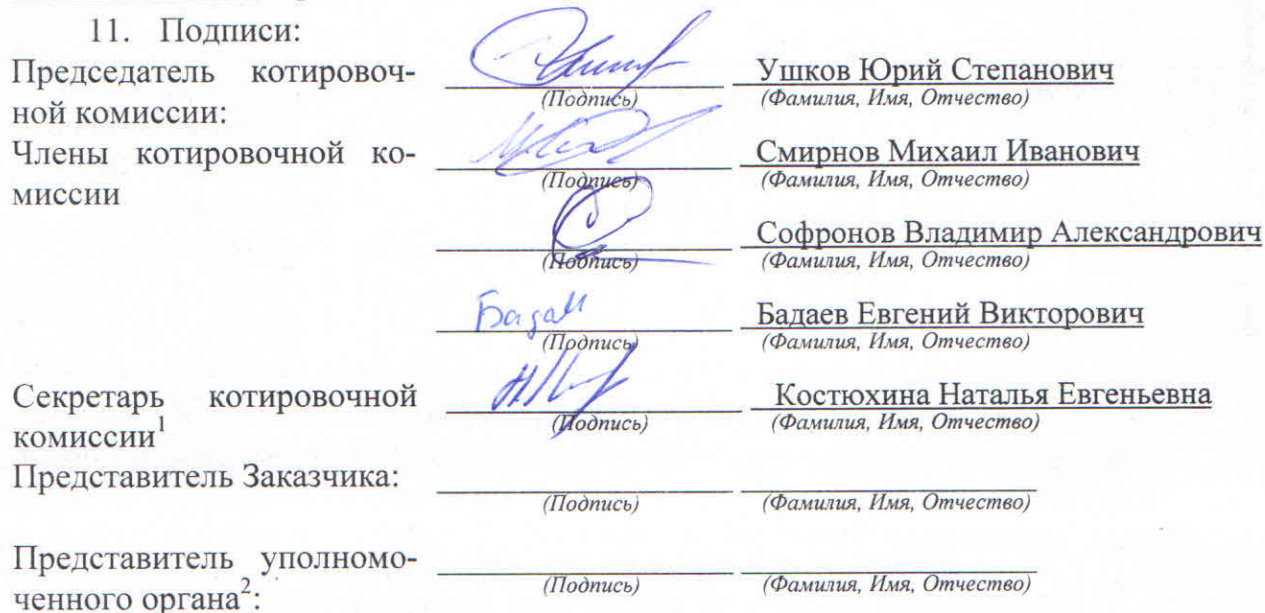 11. Подписи:
Председатель котировоч-
ной комиссии:
Ушков Юрий Степанович
(Подпись) (Фамилия, Имя, Отчество)
Члены котировочной ко-
миссии
Смирнов Михаил Иванович
(Подпись) (Фамилия, Имя, Отчество)
Софронов Владимир Александрович
(Подпись) (Фамилия, Имя, Отчество)
Бадаев Евгений Викторович
(Подпись) (Фамилия, Имя, Отчество)
Секретарь котировочной
комиссии¹
Костюхина Наталья Евгеньевна
(Подпись) (Фамилия, Имя, Отчество)
Представитель Заказчика:
(Подпись) (Фамилия, Имя, Отчество)
Представитель уполномо-
ченного органа²:
(Подпись) (Фамилия, Имя, Отчество)